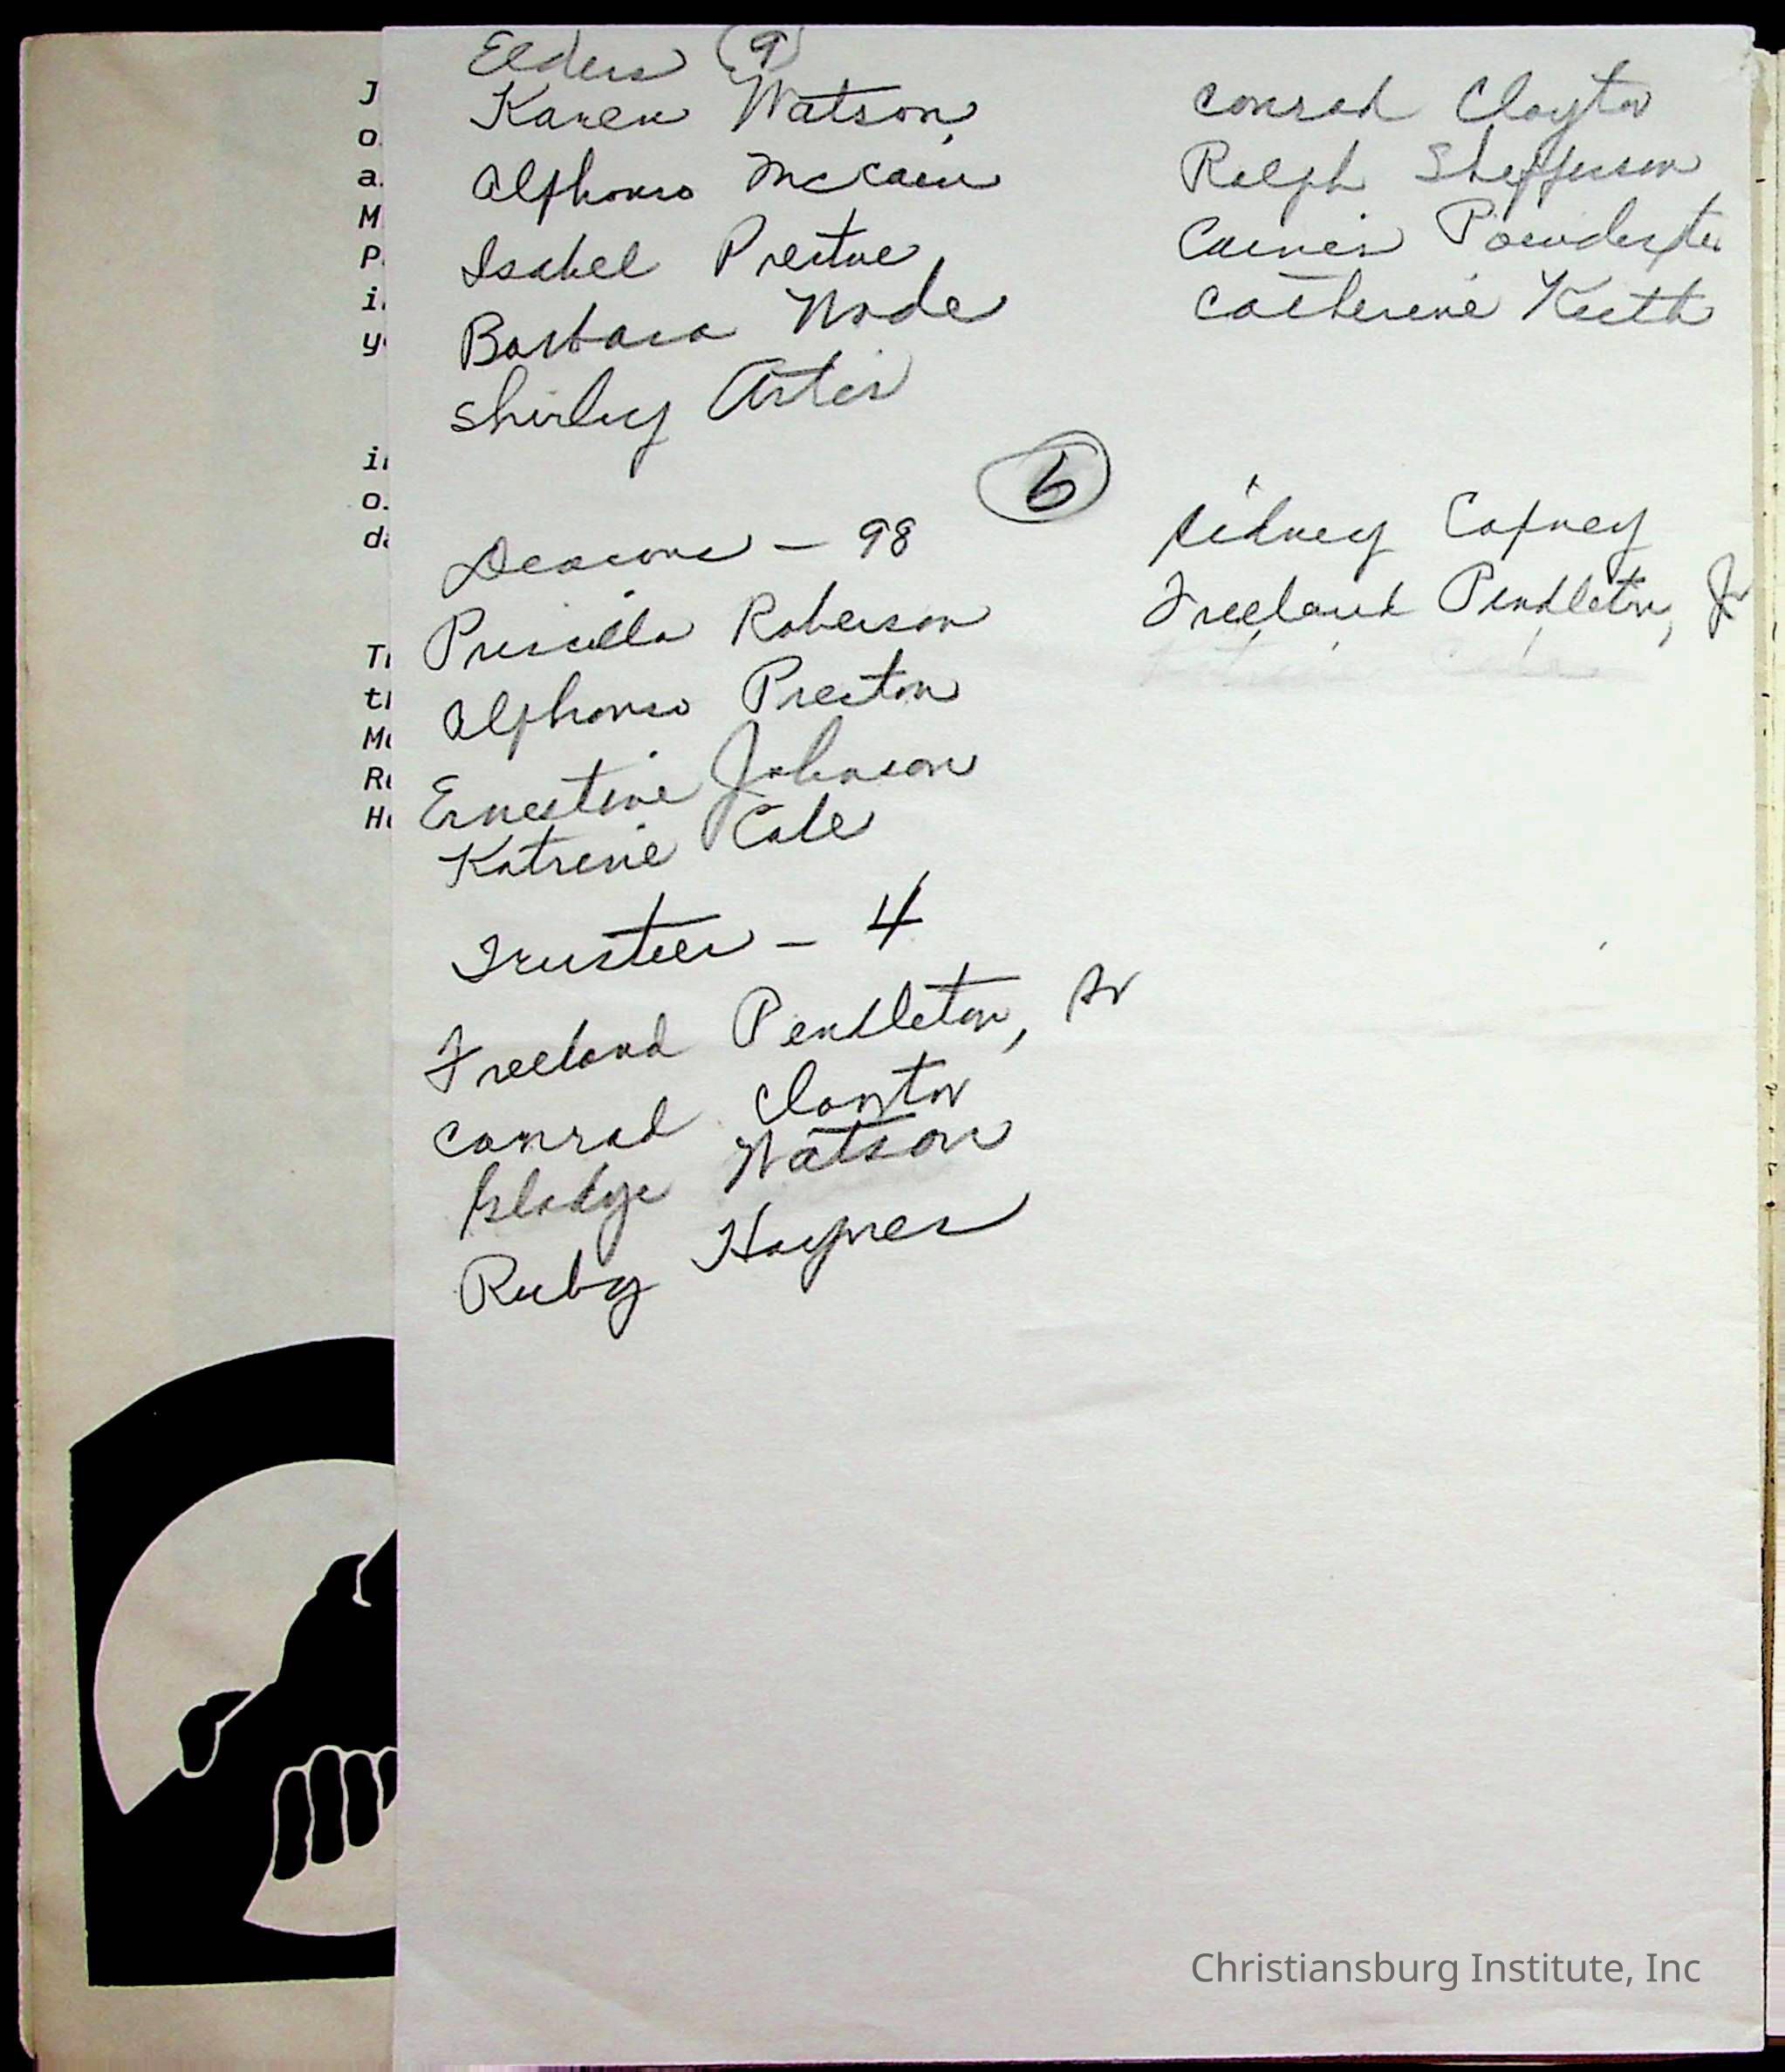 Elders (9)
Karen Watson
Alphonso McCain
Isabel Preston
Barbara Wade
Shirley Artis
Conrad Clayton
Ralph Shefferson
Carnis Poindexter
Catherine Keith
6
Deacons - 98
Priscilla Roberson
Alphonso Preston
Ernestine Johnson
Katrene Cale
Sidney
Freeland Pendleton, Jr
Trustees - 4
Freeland Pendleton, Sr
Conrad Clayton
Gladys Watson
Ruby Haynes
J
o.
a.
M
P.
i.
y
i
o.
d
T
t
M
R
H
Christiansburg Institute, Inc